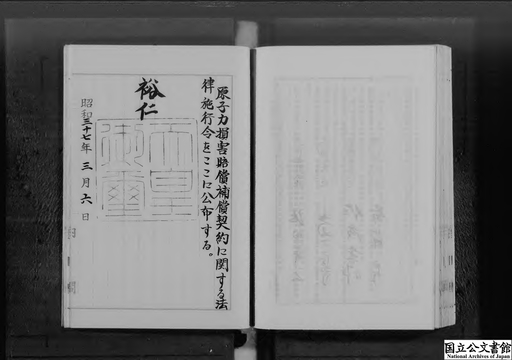 原子力損害賠償補償契約に関する法
律施行令をここに公布する。
裕仁
天皇
御璽
昭和三十七年三月六日
国立公文書館
National Archives of Japan